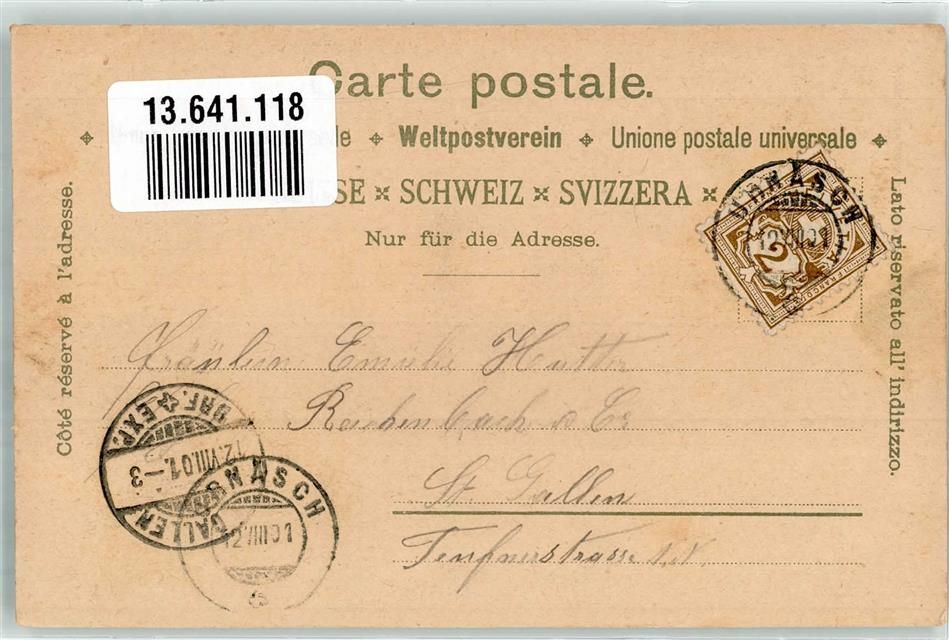 Carte postale.
13.641.118
Weltpostverein Unione postale universale
SCHWEIZ × SVIZZERA ×
Nur für die Adresse.
Côté réservé à l'adresse.
Lato riservato all' indirizzo.
URNÄSCH
12.VIII.01
2
FRANCO
Fräulein Emilie Hutter
Reichenbach & Co
St Gallen
Teufnerstrasse
GALLEN
BRF. EXP.
12.VIII.01.-3
URNÄSCH
12.VIII.01